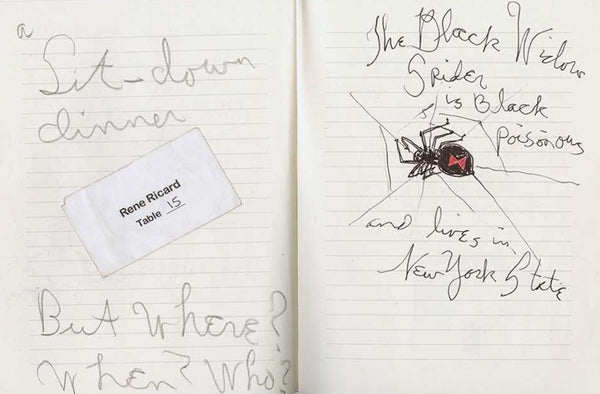 a
Sit-down
dinner
Rene Ricard
Table 15
But Where?
When? Who?
The Black Widow
Spider
is Black
Poisonous
and lives in
New York State